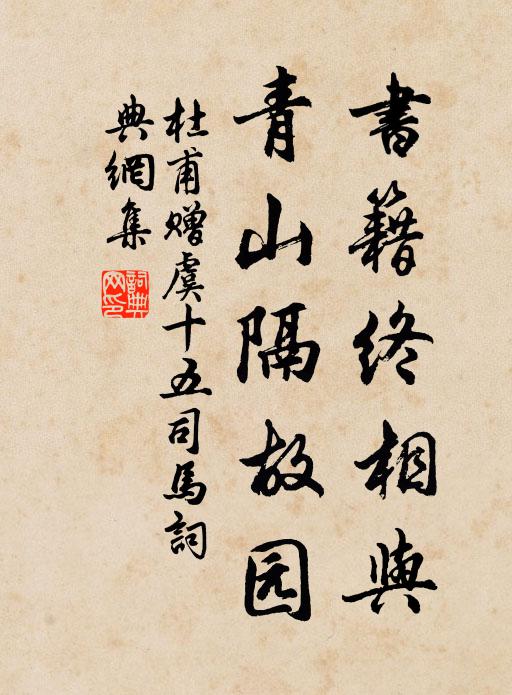 書籍終相與
青山隔故园
杜甫贈虞十五司馬詞
典網集
詞典
网印